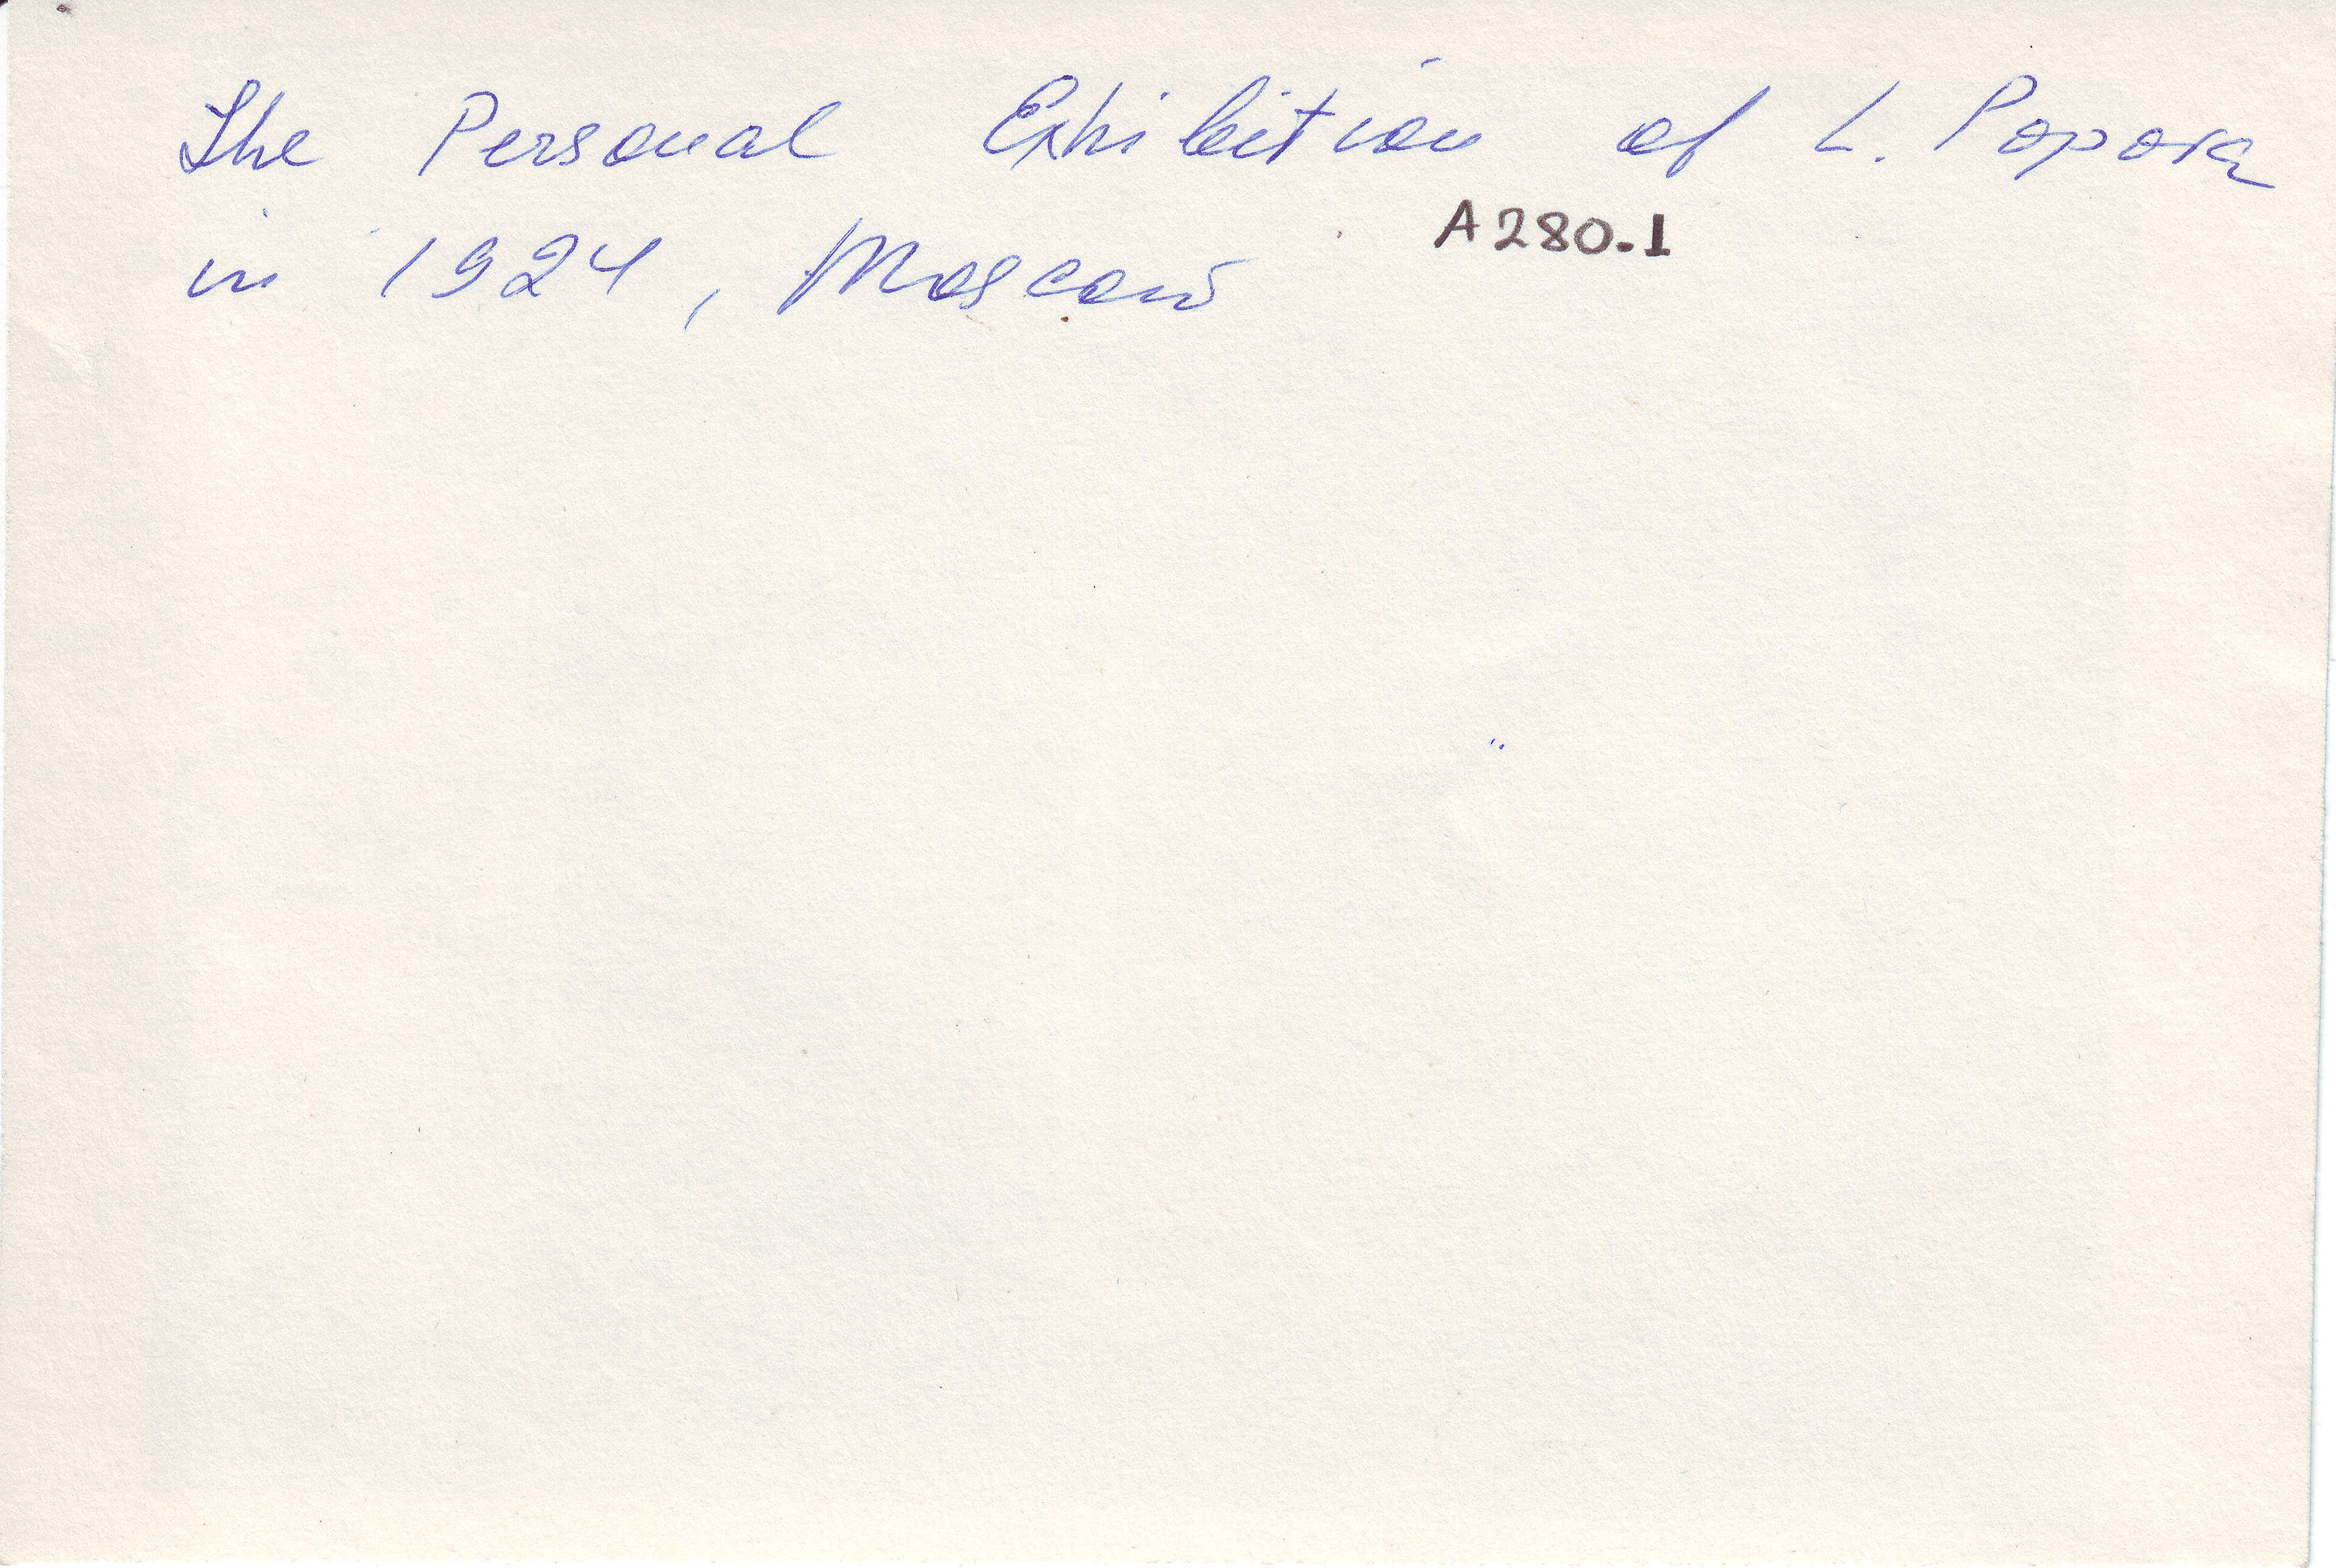 The Personal Exhibition of L. Popova
A280.1
in 1924, Moscow